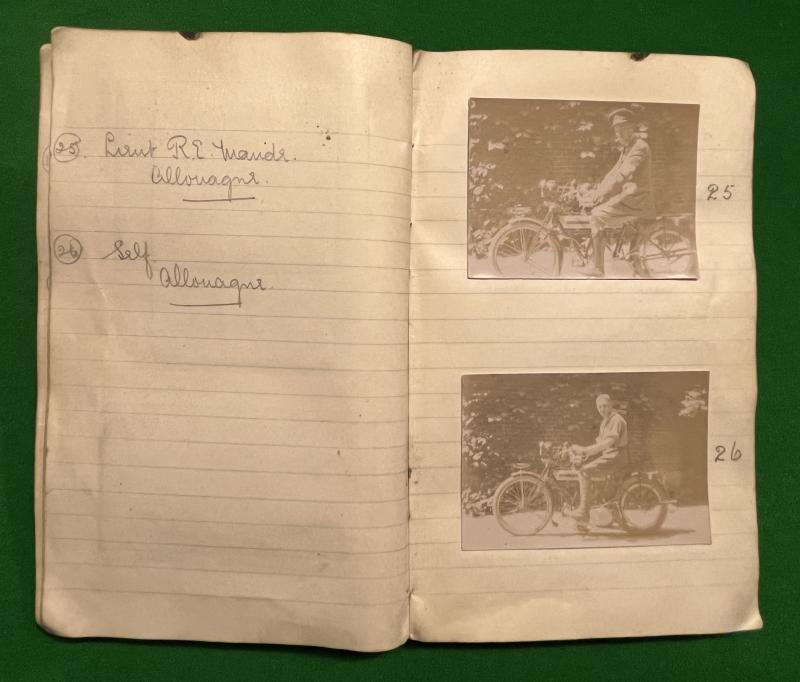 (25). Lieut R.E. Maude.
Allouagne.
(26) Self.
Allouagne.
25
26